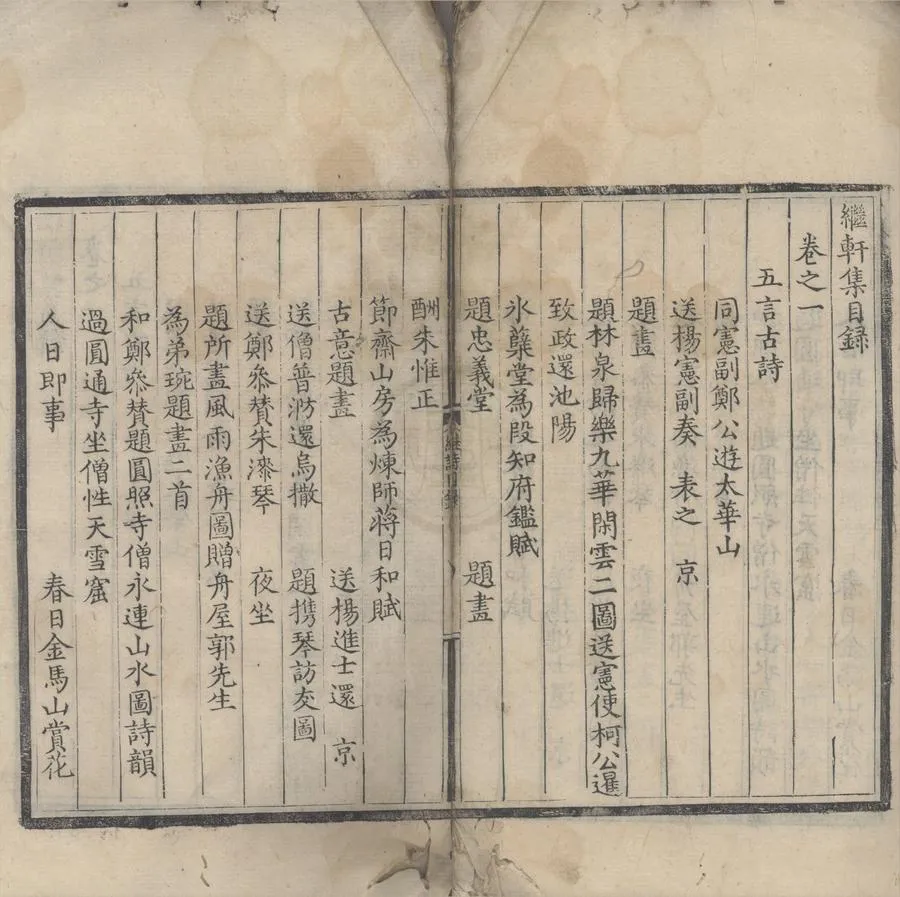 繼軒集目録
卷之一
五言古詩
同憲副鄭公遊太華山
送楊憲副奏表之 京
題畫
題林泉歸樂九華閑雲二圖送憲使柯公暹
致政還池陽
氷蘗堂為段知府鑑賦
題忠義堂 題畫
酬朱惟正
節齋山房為煉師蔣日和賦
古意題畫 送楊進士還 京
送僧普滂還烏撒 題携琴訪友圖
送鄭叅賛朱漆琴 夜坐
題所畫風雨漁舟圖贈舟屋郭先生
為弟琬題畫二首
和鄭叅賛題圓照寺僧永連山水圖詩韻
過圓通寺坐僧性天雪窟
人日即事 春日金馬山賞花